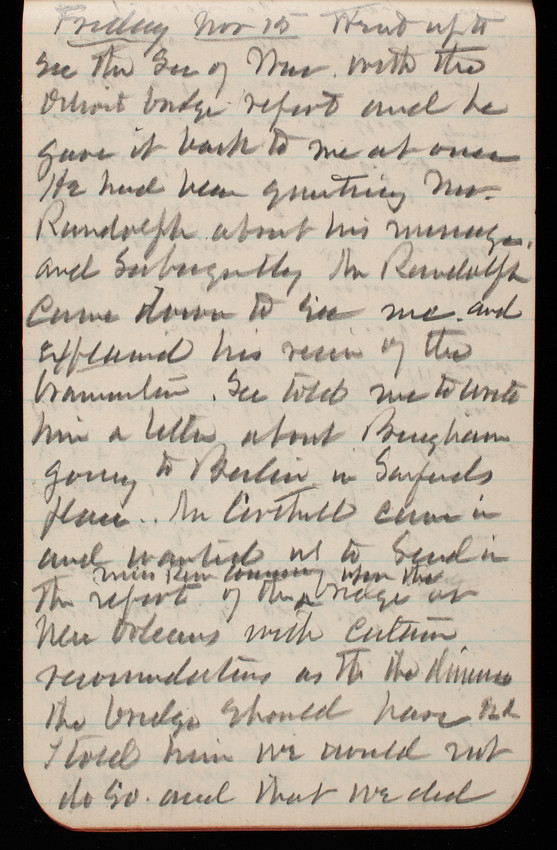 Friday Nov 15 Went up to
see the Sec of War with the
Detroit bridge report and he
gave it back to me at once
He had been quizzing Mr.
Randolph about his message,
and Subsequently Mr Randolph
came down to see me. and
explained his view of the
. Sec told me to write
him a letter about Bingham
going to Berlin in
place.. Mr came in
and wanted us to send in
Miss River Commission upon the
the report of the bridge at
New Orleans with certain
recomendations as to the
the bridge should have and
I told him we would not
do so. and that we did